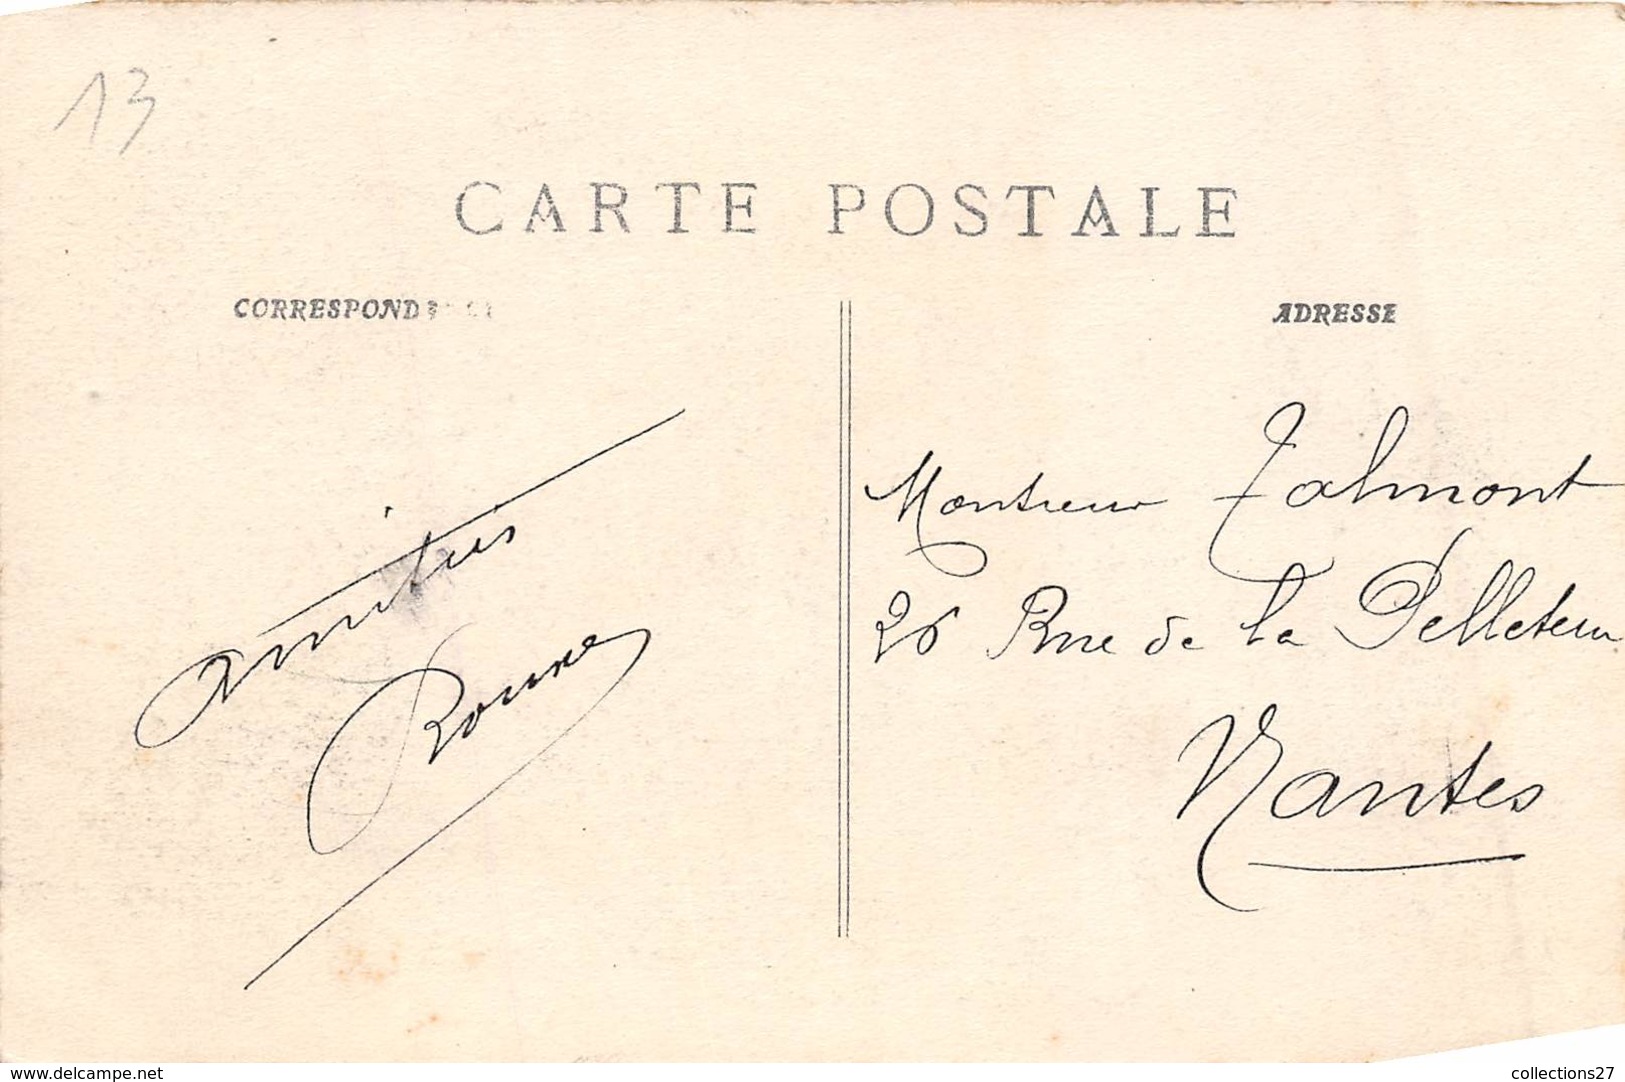 13
CARTE POSTALE
CORRESPONDANCE
ADRESSE
Amitiés
Monsieur Talmont
26 Rue de la Pelleterie
Nantes
www.delcampe.net
collections27